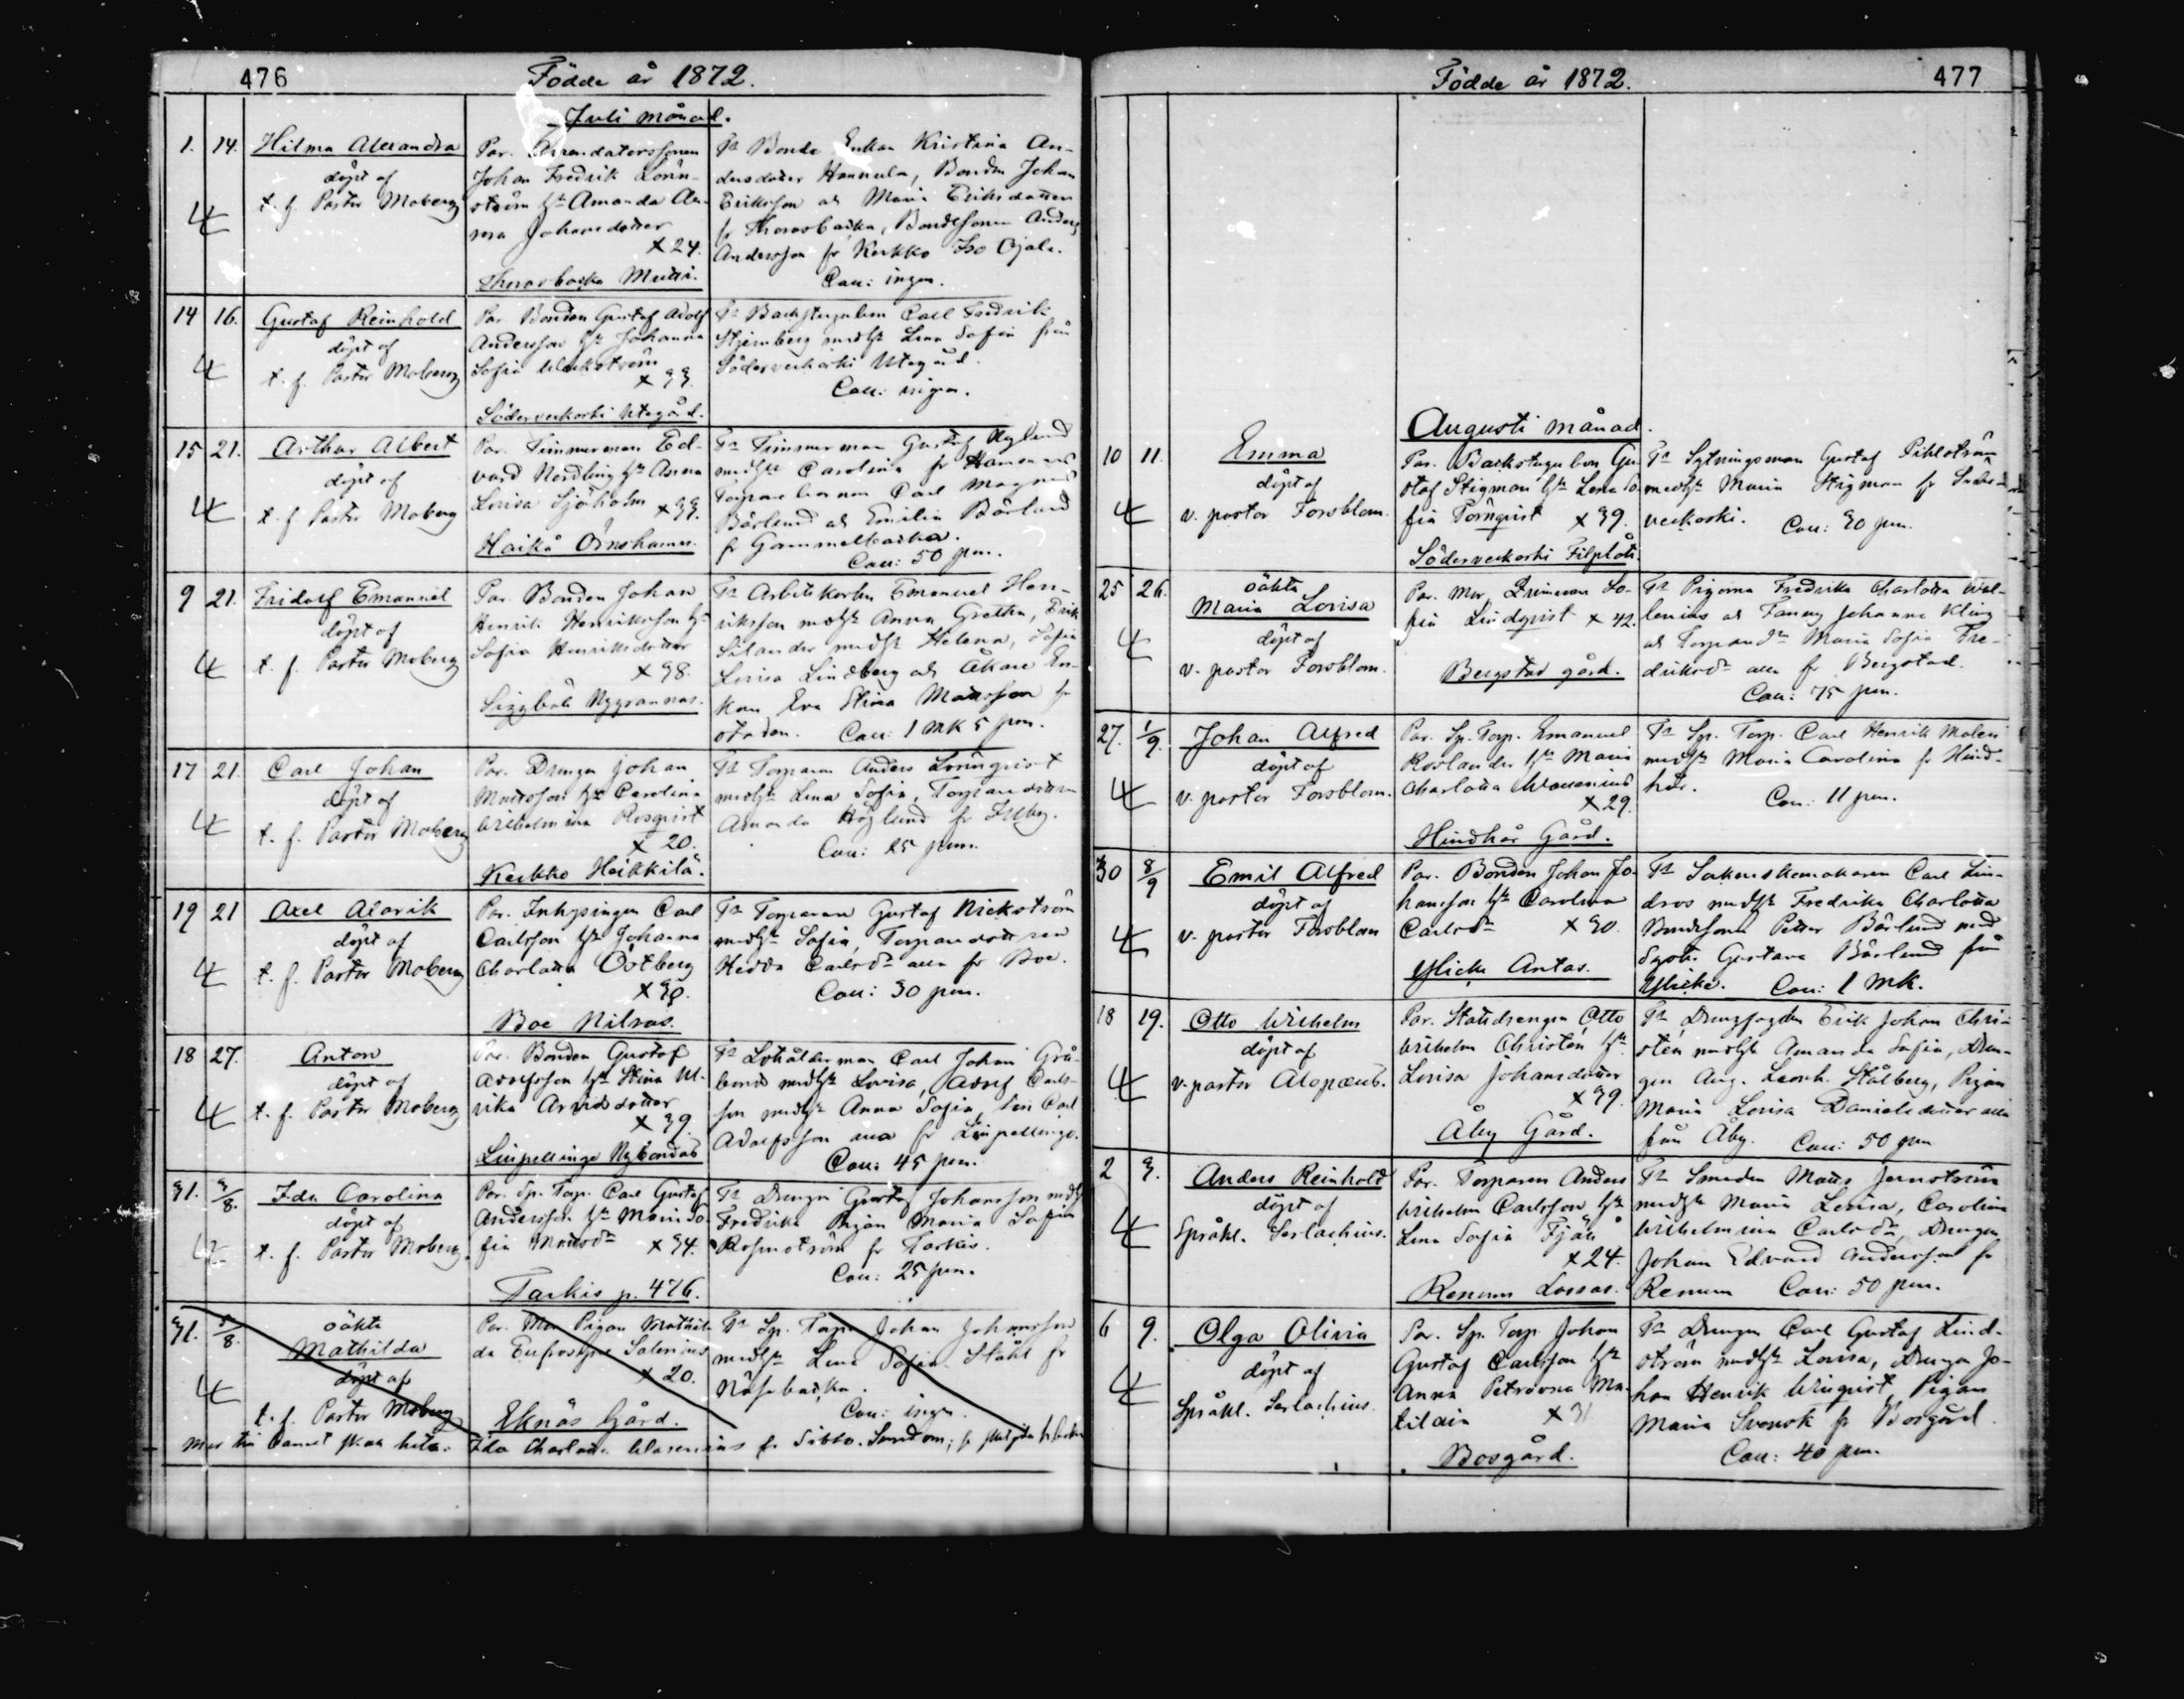 476
Födde år 1872.
Juli månad.
1. 14. Hilma Alexandra
döpt af
t. f. Pastor Moberg
Par. Arrendatorssonen
Johan Fredrik Lönn-
ström hu Amanda An-
na Johansdotter
x 24.
Thorasbacka Mutti.
Tr Bonde Enkan Kristina An-
dersdotter Hannula, Bonden Johan
Eriksson ot Maria Eriksdotter
fr Thorasbacka, Bondesonen Anders
Andersson fr Kerkko Iso Ojala.
Coll: ingen.
14 16. Gustaf Reinhold
döpt af
t. f. Pastor Moberg
Par. Bonden Gustaf Adolf
Andersson hu Johanna
Sofia Weckström
x 33.
Söderveckoski Utegård.
Tr Backstugubon Carl Fredrik
Stjernberg med hu Lena Sofia från
Söderveckoski Utegård.
Coll: ingen.
15 21. Arthur Albert
döpt af
t. f. Pastor Moberg
Par. Timmerman Ed-
vard Nordling hu Anna
Lovisa Sjöholm x 33.
Haikå Örnshamn.
Tr Timmerman Gustaf Nylund
med hu Carolina fr
Carl Magnus
Bärlund ot Emilia Bärlund
fr Gammelbacka.
Coll: 50 pen.
9 21. Fridolf Emanuel
döpt af
t. f. Pastor Moberg
Par. Bonden Johan
Henrik Henriksson hu
Sofia Henriksdotter
x 38.
Siggböle Nygrannas.
Tr Arbetskarlen Emanuel Hen-
riksson med hu Anna Gretha, Erik
Silander med hu Helena, Sofia
Lovisa Lindberg ot Åkare En-
kan Eva Stina Mattsson fr
staden. Coll: 1 mk 5 pen.
17 21. Carl Johan
döpt af
t. f. Pastor Moberg
Par. Drängen Johan
Mattsson hu Carolina
Wilhelmina Rosqvist
x 20.
Kerkko Heikkilä.
Tr Torparen Anders Lönnqvist
med hu Lena Sofia, Torparedottren
Amanda Höglund fr Illby.
Coll: 25 pen.
19 21 Axel Alarik
döpt af
t. f. Pastor Moberg
Par. Inhysingen Carl
Carlsson hu Johanna
Charlotta Östberg
x 38.
Boe Nilsas.
Tr Torparen Gustaf Nickström
med hu Sofia, Torparedottren
Hedda Carlsdr alla fr Boe.
Coll: 30 pen.
18 27. Anton
döpt af
t. f. Pastor Moberg
Par. Bonden Gustaf
Adolfsson hu Stina Ul-
rika Arvidsdotter
x 39.
Linpellinge Nybondas
Tr Carl Johan Grå-
med hu Lovisa, Adolf Carls-
son med hu Anna Sofia, Carl
Adolfsson alla fr Linpellinge.
Coll: 45 pen.
31. 3/8. Ida Carolina
döpt af
t. f. Pastor Moberg.
Par. Sp. Torp. Carl Gustaf
Andersson hu Maria So-
fia Mattsdr x 34.
Tarkis p. 476.
Tr Drängen Gustaf Johansson med hu
Fredrika Pigan Maria Sofia
Rosenström fr Tarkis.
Coll: 25 pen.
31. 5/8. oäkta
Mathilda
döpt af
t. f. Pastor Moberg
Par. Mor Pigan Mathil-
da Eufrosyne Salenius
x 20.
Eknäs Gård.
Tr Sp. Torp. Johan Johansson
med hu Lena Sofia Ståhl fr
Näsebacka.
Coll: ingen.
barnet skall heta: Ida Charlotta Wasenius fr Sibbo.
477
Födde år 1872.
Augusti månad.
10 11 Emma
döpt af
v. pastor Forsblom.
Par. Backstugubon Gu-
staf Stigman hu Lena So-
fia Törnqvist x 39.
Söderveckoski Filplått.
Tr Sytningsman Gustaf Pihlström
med hu Maria Stigman fr Söder-
veckoski. Coll: 30 pen.
25 26. oäkta
Maria Lovisa
döpt af
v. pastor Forsblom.
Par. Mor, Qvinnan So-
fia Lindqvist x 42.
Bergstad gård.
Tr Pigorna Fredrika Charlotta Wal-
lenius ot Fanny Johanna Kling
ot Torparedr Maria Sofia Fre-
driksdr alla fr Bergstad.
Coll: 75 pen.
27. 1/9. Johan Alfred
döpt af
v. pastor Forsblom.
Par. Sp. Torp. Emanuel
Roslander hu Maria
Charlotta Wasenius
x 29.
Hindhår Gård.
Tr Sp. Torp. Carl Henrik Malen
med hu Maria Carolina fr Hind-
hår. Coll: 11 pen.
30 8/9 Emil Alfred
döpt af
v. pastor Forsblom
Par. Bonden Johan Jo-
hansson hu Carolina
Carlsdr x 30.
Ylike Antas.
Tr Sockenskomakaren Carl Lin-
dros med hu Fredrika Charlotta
Bondesonen Petter Bärlund med
Syster Gustava Bärlund från
Ylike. Coll: 1 mk.
18 19. Otto Wilhelm
döpt af
v. pastor Alopæus.
Par. Statdrengen Otto
Wilhelm Christén hu
Lovisa Johansdotter
x 39.
Åby Gård.
Tr Drengfogden Erik Johan Chri-
stén med hu Amanda Sofia, Dren-
gen Aug. Leonh. Stålberg, Pigan
Maria Lovisa Danielsdotter alla
från Åby. Coll: 50 pen
2 3. Anders Reinhold
döpt af
Språkl. Serlachius.
Par. Torparen Anders
Wilhelm Carlsson hu
Lena Sofia Fjäll
x 24.
Renum Lassas.
Tr Smeden Matts Jernström
med hu Maria Lovisa, Carolina
Wilhelmina Carlsdr, Drengen
Johan Edvard Andersson fr
Renum Coll: 50 pen.
6 9. Olga Olivia
döpt af
Språkl. Serlachius.
Par. Sp. Torp Johan
Gustaf Carlsson hu
Anna Petrovna Ma-
tilain x 31
Bosgård.
Tr Drengen Carl Gustaf Lind-
ström med hu Lovisa, Drengen Jo-
han Henrik Winqvist, Pigan
Maria Svensk fr Bosgård.
Coll: 40 pen.